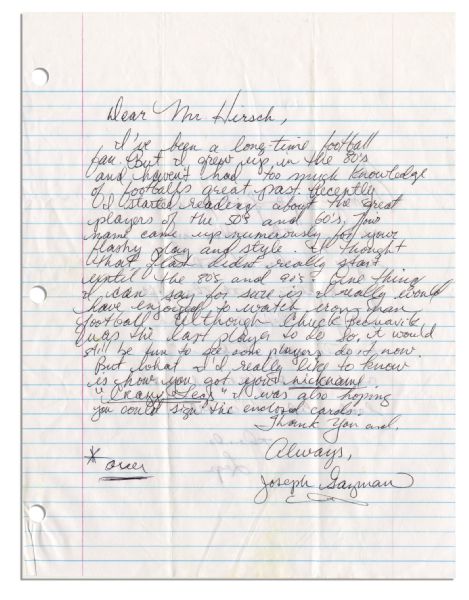 Dear Mr Hirsch,
I've been a long-time football
fan. But I grew up in the 80's
and haven't had too much knowledge
of footballs great past. Recently
I started reading about the great
players of the 50's and 60's. Your
name came up numerously for your
flashy play and style. I thought
that flash didn't really start
until the 80's and 90's. One thing
I can say for sure is I really would
have enjoyed to watch iron man
football. Although Chuck
was the last player to do so, it would
still be fun to see some players do it now.
But what I'd really like to know
is how you got your nickname.
"Crazy Legs" I was also hoping
you could sign the enclosed cards.
Thank You and.
Always,
Joseph
* over